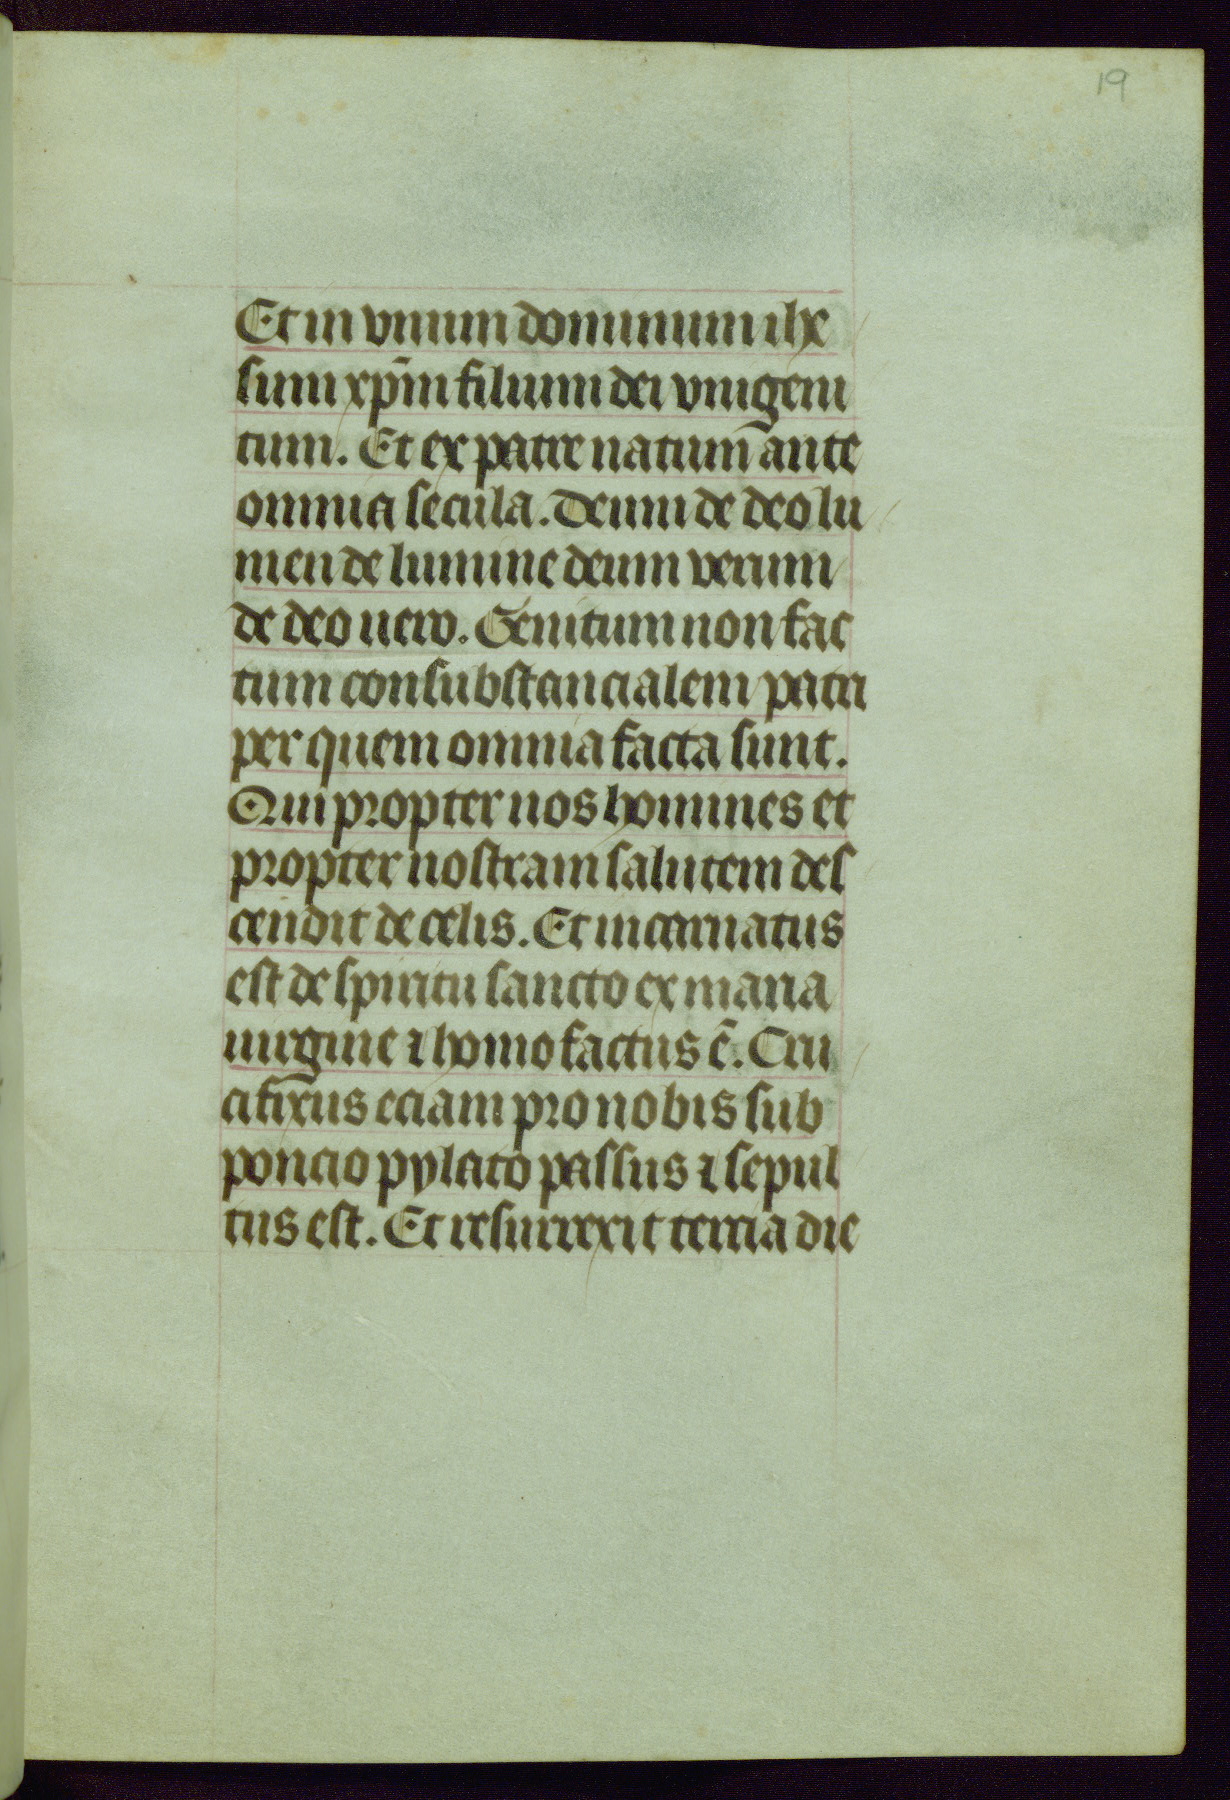 19
Et in vnum dominum ihe
sum xp̄m filium dei vnigeni
tum. Et ex patre natum ante
omnia secula. Deum de deo lu
men de lumine deum verum
de deo uero. Genitum non fac
tum consubstancialem patri
per quem omnia facta sunt.
Qui propter nos homines et
propter nostram salutem des
cendit de celis. Et incarnatus
est de spiritu sancto ex maria
uirgine ⁊ homo factus ē. Cru
cifixus eciam pro nobis sub
poncio pylato passus ⁊ sepul
tus est. Et resurrexit tercia die